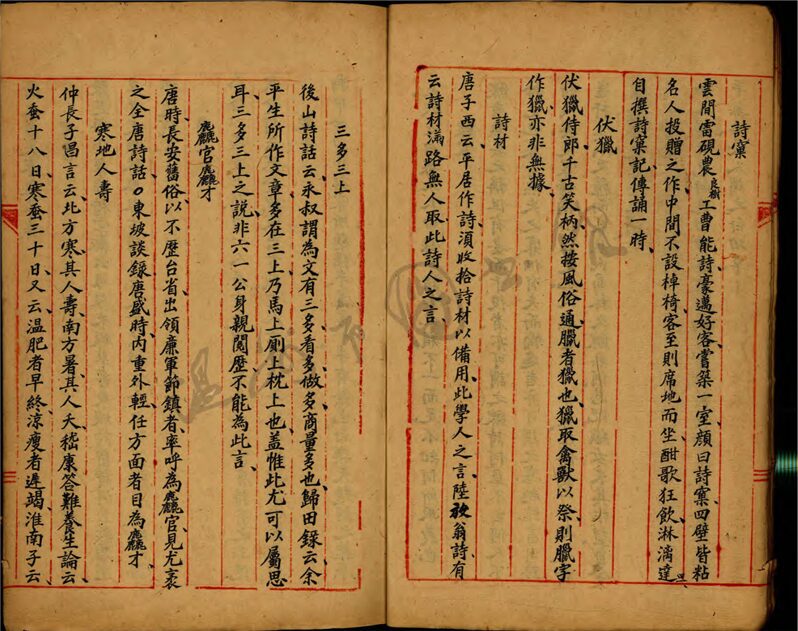 詩窠
雲間雷硯農良樹工曹能詩豪邁好客嘗築一室顔曰詩窠四壁皆粘
名人投贈之作中間不設棹椅客至則席地而坐酣歌狂飲淋漓達旦
自撰詩窠記傳誦一時
伏獵
伏獵侍郎千古笑柄然按風俗通臘者獵也獵取禽獸以祭則臘字
作獵亦非無據
詩材
唐子西云平居作詩湏收拾詩材以備用此學人之言陸放翁詩有
云詩材滿路無人取此詩人之言
三多三上
後山詩話云永叔謂為文有三多看多做多商量多也歸田錄云余
平生所作文章多在三上乃馬上厠上枕上也盖惟此尤可以屬思
耳三多三上之説非六一公身親閲歷不能為此言
麤官麤才
唐時長安舊俗以不歷台省出領廉軍節鎮者率呼為麤官見尤袤
之全唐詩話○東坡談錄唐盛時内重外輕任方面者目為麤才
寒地人壽
仲長子昌言云北方寒其人壽南方暑其人夭嵇康答難養生論云
火蚕十八日寒蚕三十日又云温肥者早終涼瘦者遲竭淮南子云